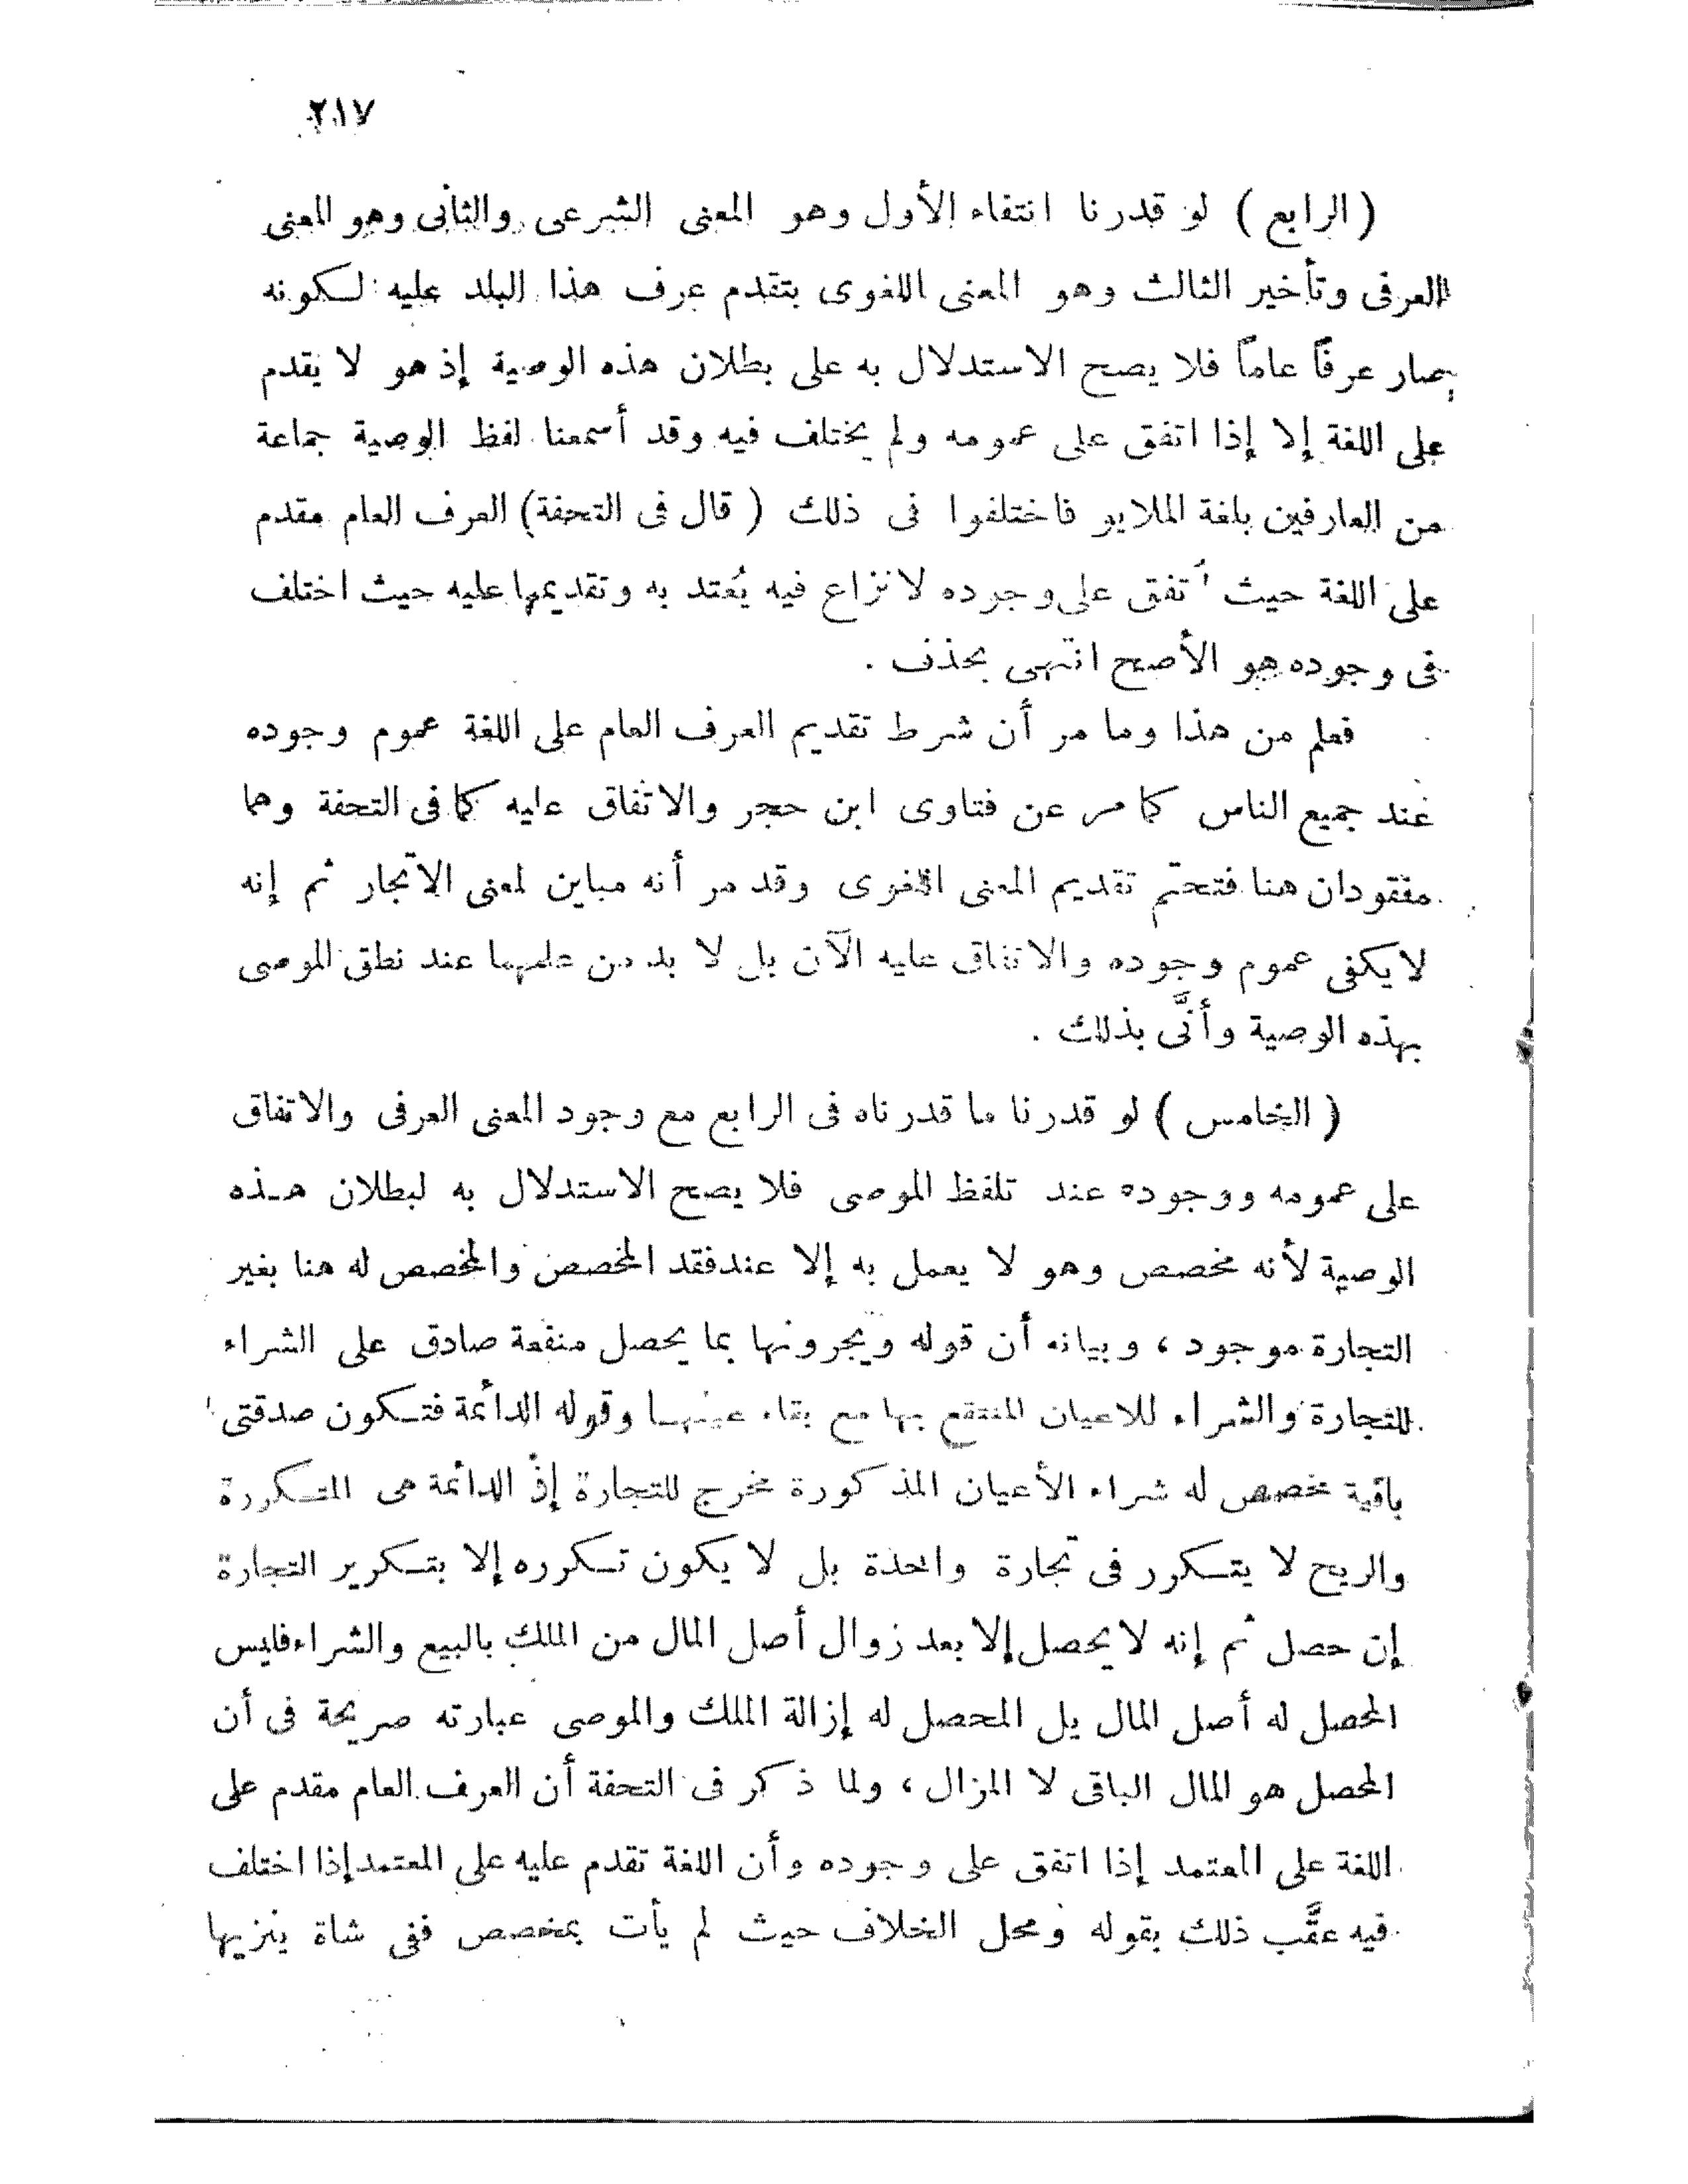 ٢١٧
( الرابع ) لو قدرنا انتفاء الأول وهو المعنى الشرعى والثانى وهو المعنى
العرفى وتأخير الثالث وهو المعنى اللغوى بتقدم عرف هذا البلد عليه لكونه
صار عرفاً عاماً فلا يصح الاستدلال به على بطلان هذه الوصية إذ هو لا يقدم
على اللغة إلا إذا اتفق على عمومه ولم يختلف فيه وقد أسمعنا لفظ الوصية جماعة
من العارفين بلغة الملايو فاختلفوا فى ذلك ( قال فى التحفة) العرف العام مقدم
على اللغة حيث اُتفق على وجوده لا نزاع فيه يُعتد به وتقديمها عليه حيث اختلف
فى وجوده هو الأصح انتهى بحذف .
فعلم من هذا وما مر أن شرط تقديم العرف العام على اللغة عموم وجوده
عند جميع الناس كما مر عن فتاوى ابن حجر والاتفاق عليه كما فى التحفة وهما
مفقودان هنا فتحتم تقديم المعنى اللغوى وقد مر أنه مباين لمعنى الاتجار ثم إنه
لا يكفى عموم وجوده والاتفاق عليه الآن بل لا بد من علمهما عند نطق الموصى
بهذه الوصية وأنَّى بذلك .
( الخامس ) لو قدرنا ما قدرناه فى الرابع مع وجود المعنى العرفى والاتفاق
على عمومه ووجوده عند تلفظ الموصى فلا يصح الاستدلال به لبطلان هذه
الوصية لأنه مخصص وهو لا يعمل به إلا عند فقد المخصص والمخصص له هنا بغير
التجارة موجود ، وبيانه أن قوله ويجرونها بما يحصل منفعة صادق على الشراء
للتجارة والشراء للاعيان المنتفع بها مع بقاء عينها وقوله الدائمة فتكون صدقتى
باقية مخصص له شراء الأعيان المذكورة مخرج للتجارة إذ الدائمة هى المتكررة
والربح لا يتكرر فى تجارة واحدة بل لا يكون تكرره إلا بتكرير التجارة
إن حصل ثم إنه لا يحصل إلا بعد زوال أصل المال من الملك بالبيع والشراء فليس
المحصل له أصل المال يل المحصل له إزالة الملك والموصى عبارته صريحة فى أن
المحصل هو المال الباقى لا المزال ، ولما ذكر فى التحفة أن العرف العام مقدم على
اللغة على المعتمد إذا اتفق على وجوده وأن اللغة تقدم عليه على المعتمد إذا اختلف
فيه عقَّب ذلك بقوله ومحل الخلاف حيث لم يأت بمخصص ففى شاة ينزيها